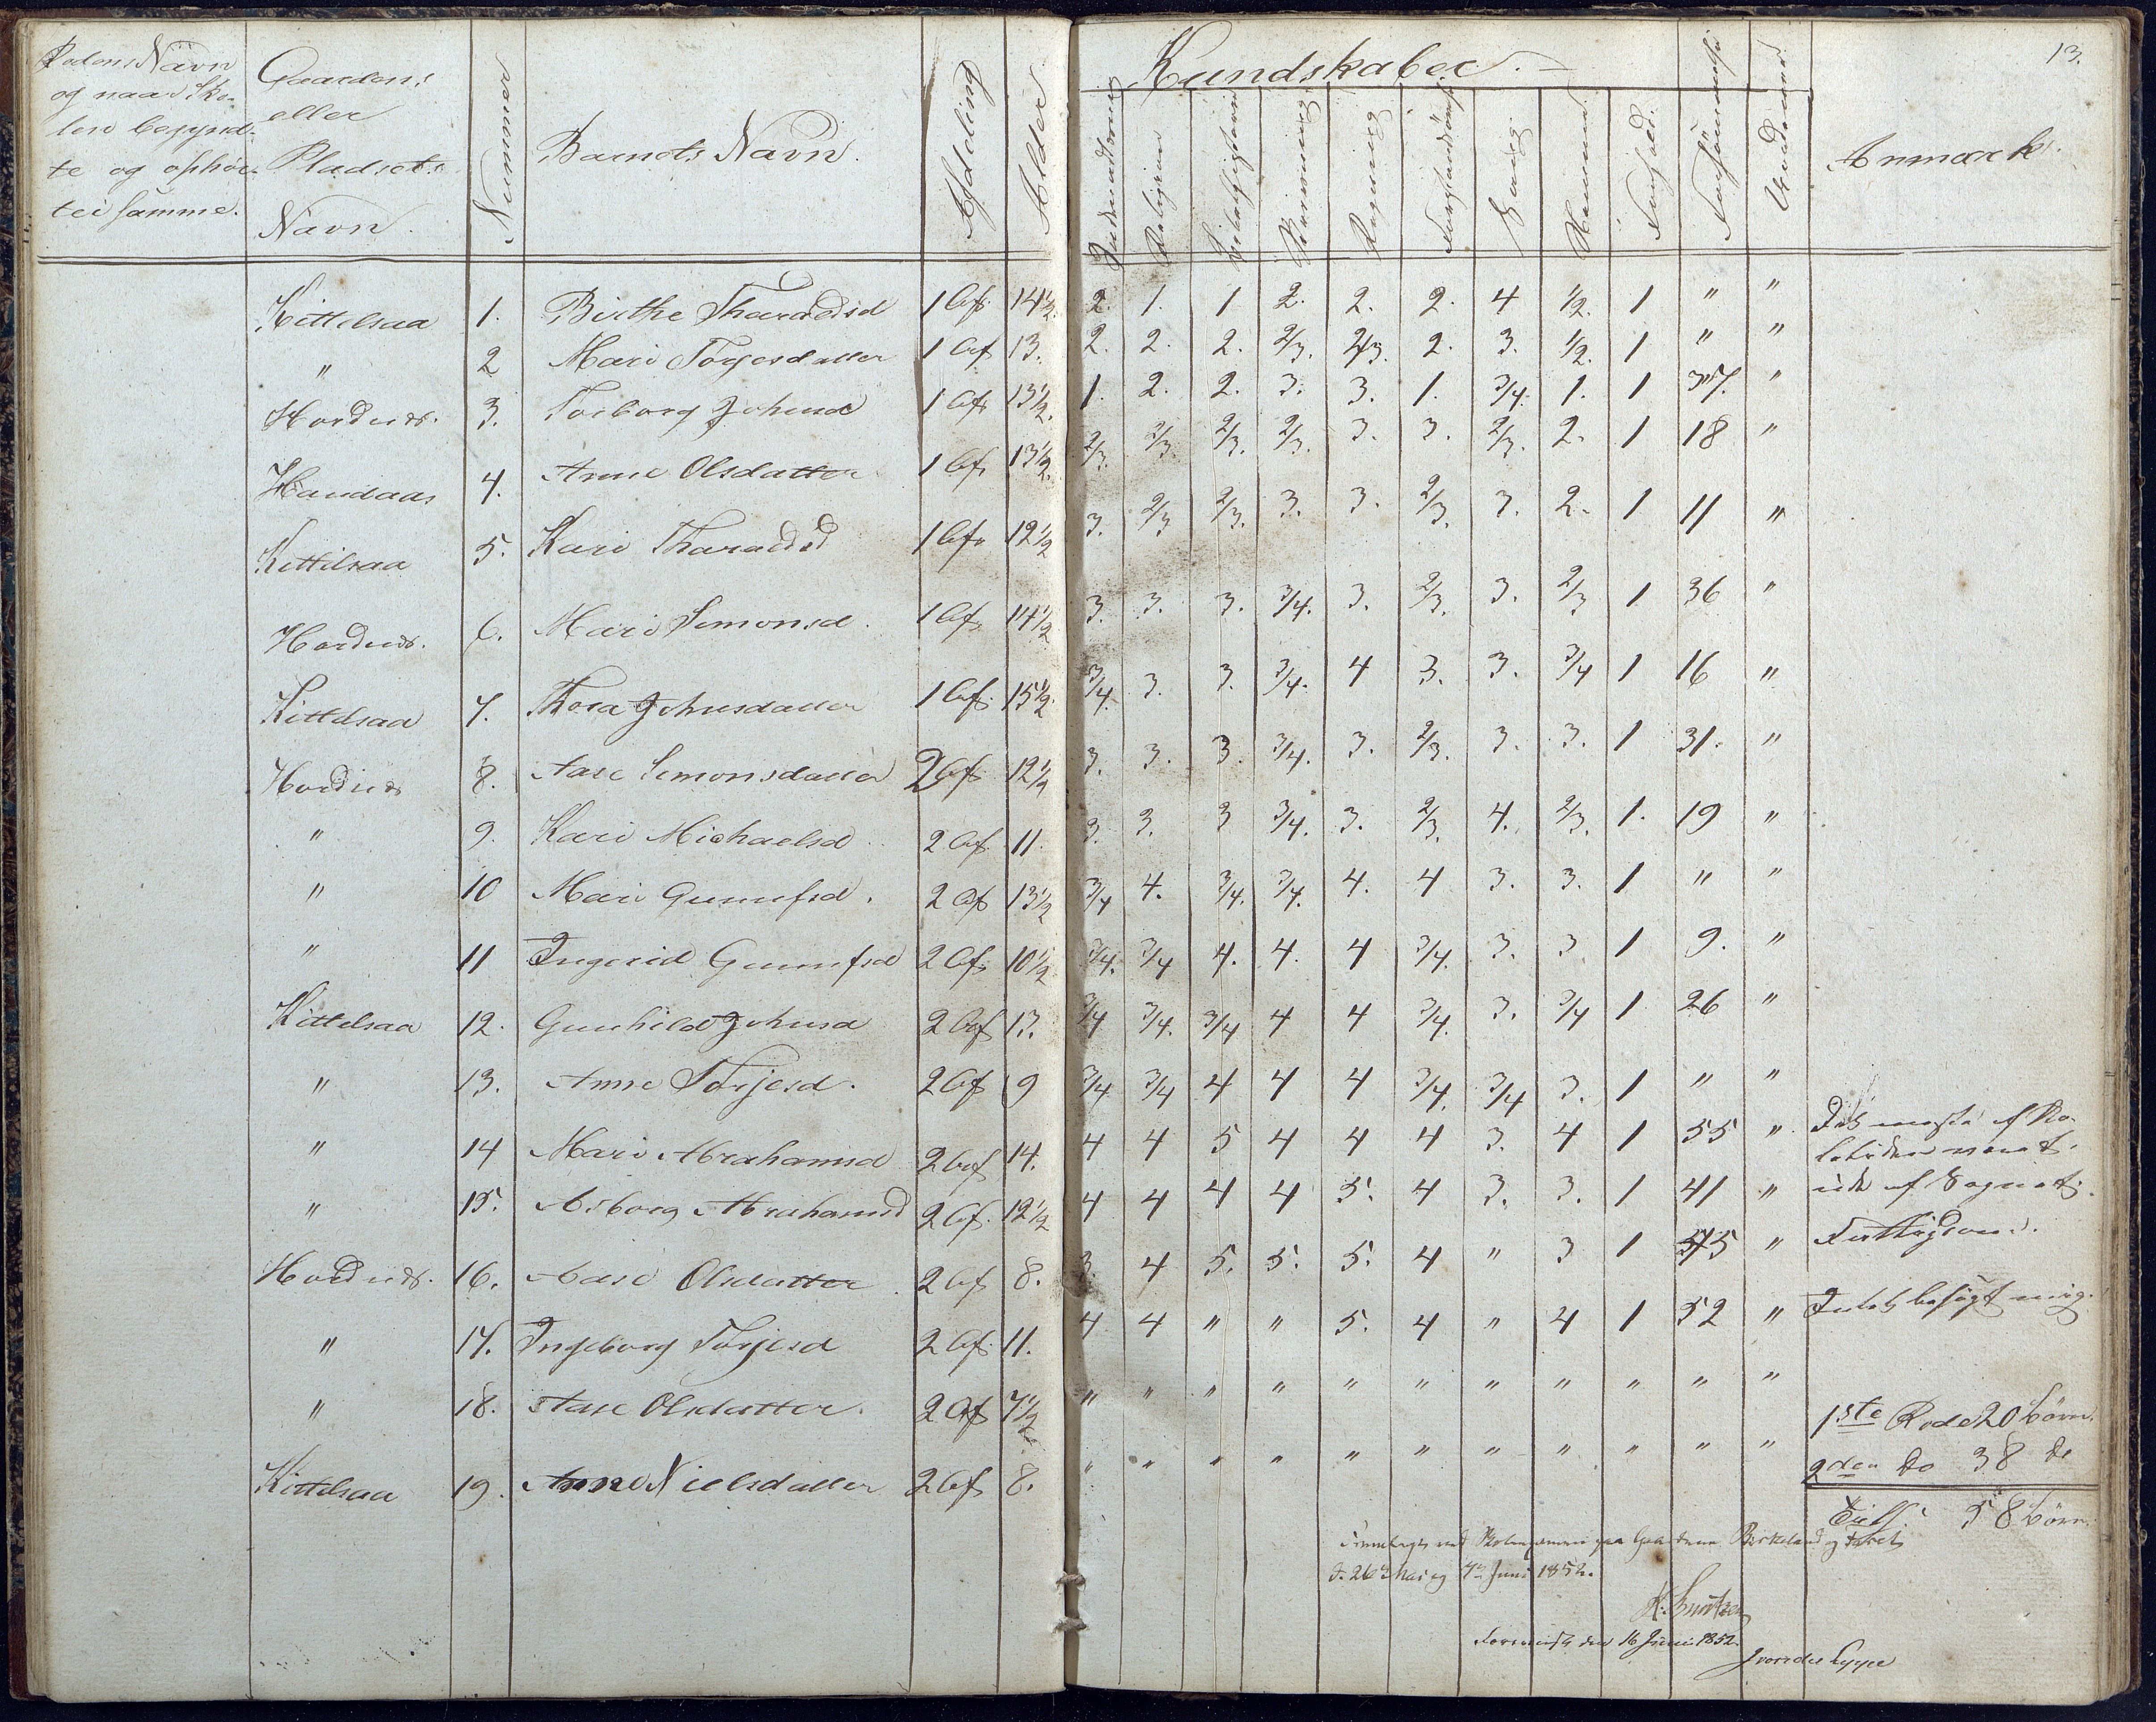 13.
Rodens Navn
og naar Sko-
len begynd-
te og ophør-
tei samme.
Gaardens
eller
Pladsets
Navn.
Nummer
Barnets Navn.
Afdeling
Alder
Kundskaber. —
Religion
Skrivning
Regning
Sang
Anmærk.
Kittilsaa 1. Birthe Tharaldsd 1 Af. 14½. 2. 1. 1 2. 2. 2. 4 1/2. 1 " "
" 2 Mari Torjesdatter 1 Af 13. 2. 2. 2. 2/3. 2/3. 2. 3. 1/2. 1 " "
Hordnes. 3. Torborg Johnsd 1 Af 13½. 1. 2. 2. 3. 3. 1. 3/4. 1. 1 37. "
Haudaas 4. Anne Olsdatter 1 Af. 13½. 2/3. 2/3. 2/3. 2/3. 3. 3. 2/3. 2. 1 18 "
Kittilsaa 5. Kari Tharaldsd 1 Af. 12½ 3. 2/3 2/3. 3. 3. 2/3. 3. 2. 1 11 "
Hordnes. 6. Mari Simonsd. 1 Af. 14½ 3. 3. 3. 3/4. 3. 2/3. 3. 2/3 1 36 "
Kittilsaa 7. Thora Johnsdatter 1 Af. 15½ 3/4. 3. 3. 3/4. 4 3. 3. 3/4 1 16 "
Hordnes 8. Aase Simonsdatter 2 Af. 12½ 3. 3. 3. 3/4. 3. 2/3. 3. 3. 1 31. "
" 9. Kari Michaelsd. 2 Af. 11. 3. 3. 3 3/4. 3. 2/3. 4. 2/3. 1. 19 "
" 10 Mari Gunufsd. 2 Af 13½ 3/4 4. 3/4. 3/4. 4. 4 3. 3. 1 " "
" 11 Ingerid Gunufsd 2 Af. 10½ 3/4. 3/4 4. 4. 4 3/4. 3. 3 1 9. "
Kittelsaa 12. Gunhild Johnsd 2 Af 13. 3/4 3/4. 3/4 4 4 3/4. 3. 3/4 1 26 "
" 13. Anne Torjesd. 2 Af 9 3/4 3/4 4 4 4 3/4. 3/4 3. 1 " "
" 14 Mari Abrahamsd 2 Af 14. 4 4 5 4 4 4 3. 4 1 55 "
" 15. Asborg Abrahamsd 2 Af. 12½ 4 4 4 4 5. 4 3. 3. 1 41 "
Hordnes. 16. Aase Olsdatter. 2 Af 8. 3. 4 5. 5. 5. 4 " 3 1 55 "
" 17. Ingeborg Torjesd 2 Af. 11. 4 4 " " 5. 4 " 4 1 52 "
" 18. Aase Olsdatter. 2 Af 7½ " " " " " " " " " " "
Kittilsaa 19. Anne Nielsdatter 2 Af 8. " " " " " " " " " " "
ude af Sognet.
1ste Rode 20 børn.
2den do 38 do
58 børn.
Fremlagt ved Skoleexamen paa Gaardene Birkeland og
d. 26 Mai og 4de Juni 1852.
den 16 Juni 1852.